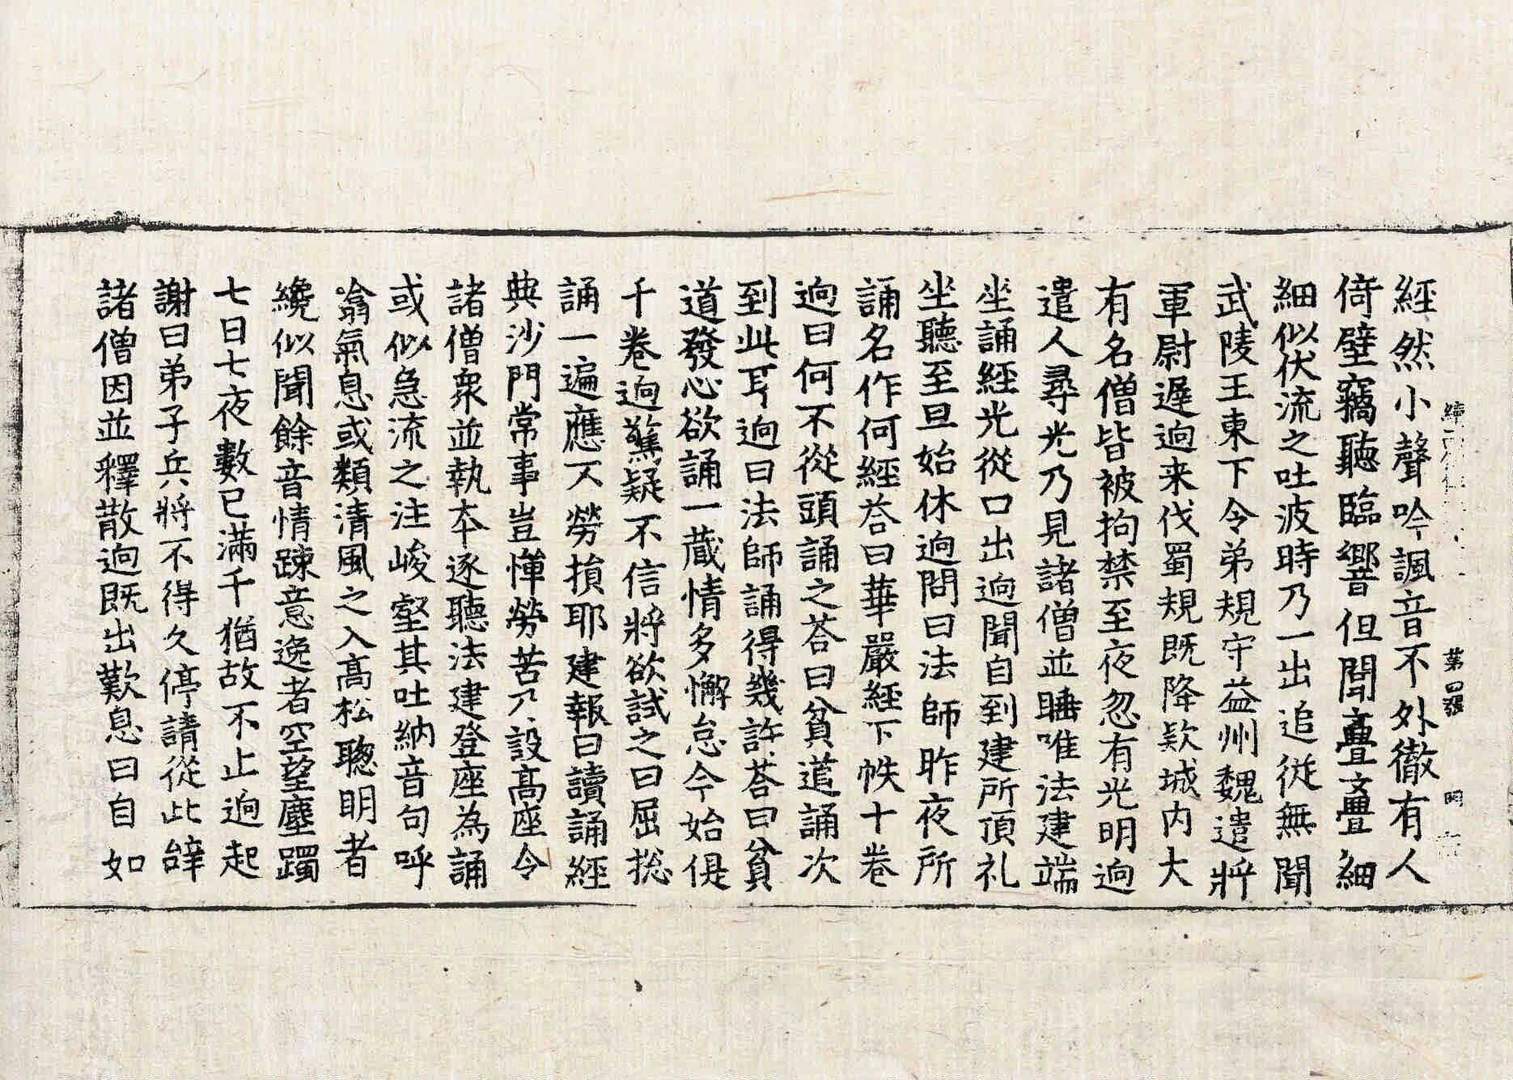 經然小聲吟諷音不外徹有人
倚壁竊聽臨響但聞亹亹細
細似伏流之吐波時乃一出追從無聞
武陵王東下令弟規守益州魏遣將
軍尉遲逈来伐蜀規既降款城内大
有名僧皆被拘禁至夜忽有光明逈
遣人尋光乃見諸僧並睡唯法建端
坐誦經光從口出逈聞自到建所頂礼
坐聽至旦始休逈問曰法師昨夜所
誦名作何經荅曰華嚴經下帙十卷
逈曰何不從頭誦之荅曰貧道誦次
到此耳逈曰法師誦得幾許荅曰貧
道發心欲誦一藏情多懈怠今始得
千卷逈驚疑不信將欲試之曰屈捴
誦一遍應不勞損耶建報曰讀誦經
典沙門常事豈憚勞苦乃設髙座令
諸僧衆並執夲逐聽法建登座為誦
或似急流之注峻壑其吐納音句呼
噏氣息或類清風之入髙松聦明者
纔似聞餘音情踈意逸者空望塵躅
七日七夜數已滿千猶故不止逈起
謝曰弟子兵將不得久停請從此辝
諸僧因並釋散逈既出歎息曰自如